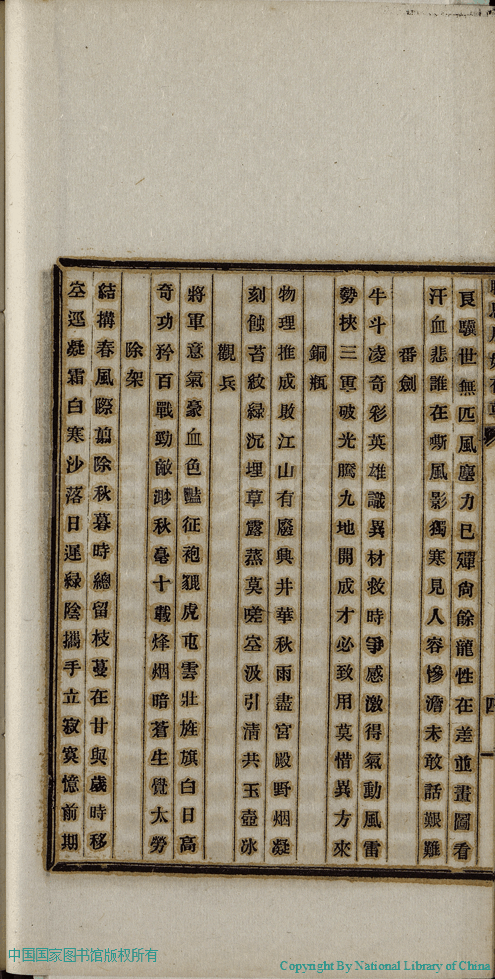 良驥世無匹風塵力已殫尚餘龍性在差並畫圖看
汗血悲誰在嘶風影獨寒見人容慘澹未敢話艱難
番劍
牛斗凌奇彩英雄識異材救時爭感激得氣動風雷
勢挾三軍破光騰九地開成才必致用莫惜異方來
銅瓶
物理推成敗江山有廢興井華秋雨盡宮殿野烟凝
刻蝕苔紋綠沉埋草露蒸莫嗟空汲引清共玉壺冰
觀兵
將軍意氣豪血色豔征袍貔虎屯雲壯旌旗白日高
奇功矜百戰勁敵渺秋毫十載烽烟暗蒼生覺太勞
除架
結構春風際翦除秋暮時總留枝蔓在甘與歲時移
空遲凝霜白寒沙落日遲綠陰攜手立寂寞憶前期
四
中国国家图书馆版权所有
Copyright By National Library of China